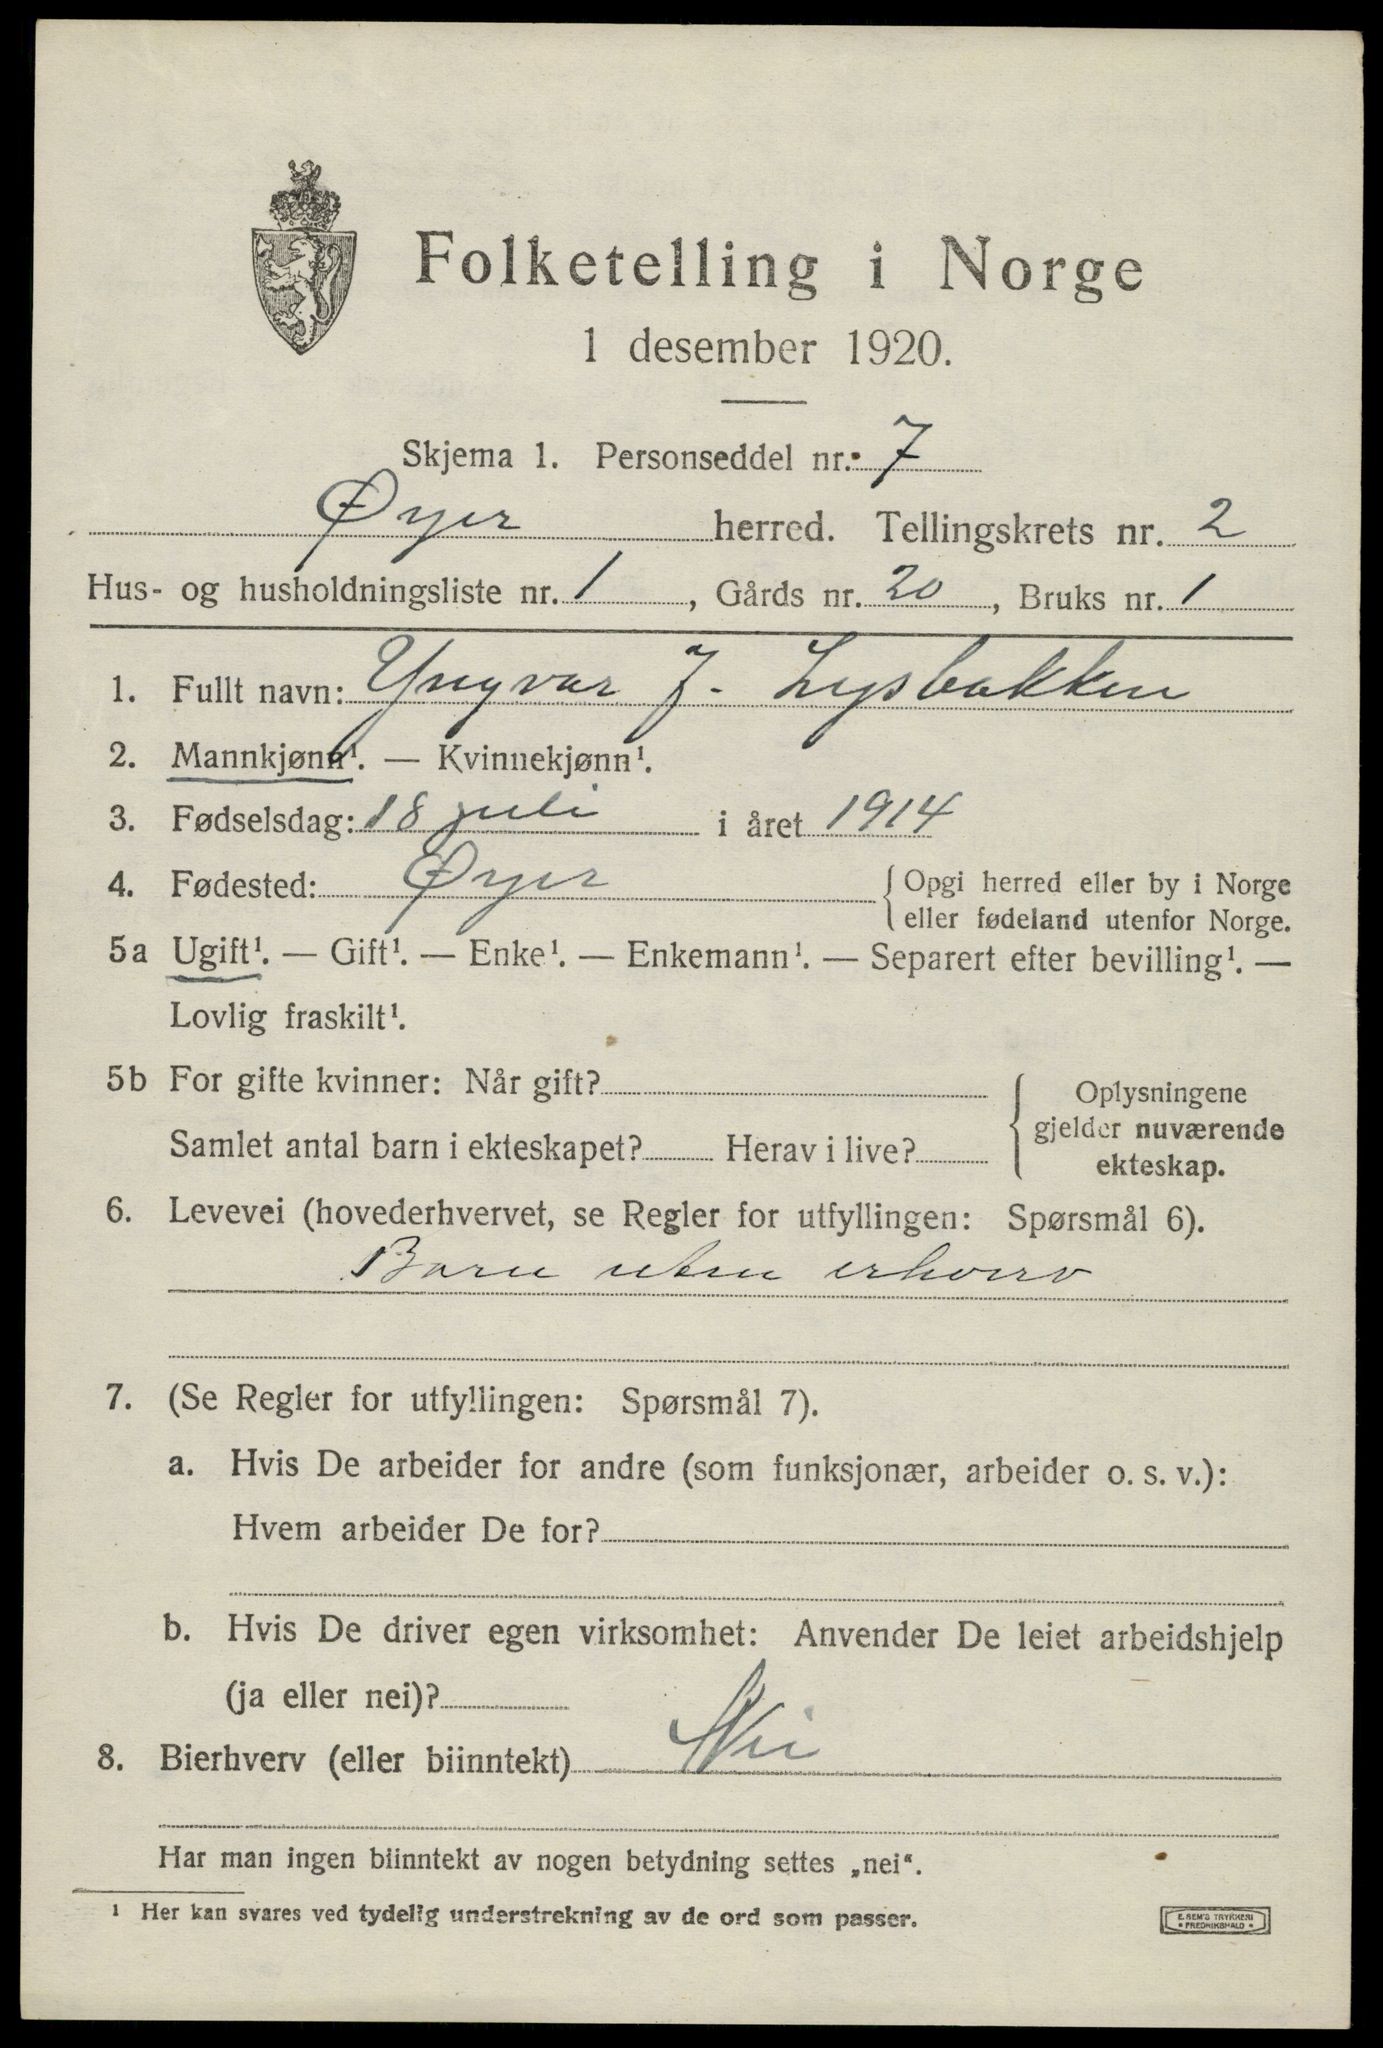 Folketelling i Norge
1 desember 1920.
Skjema 1. Personseddel nr. 7
Øyer herred. Tellingskrets nr. 2
Hus- og husholdningsliste nr. 1, Gårds nr. 20, Bruks nr. 1
1. Fullt navn: Yngvar J. Lysbakken
2. Mannkjønn¹. — Kvinnekjønn¹.
3. Fødselsdag: 18 juli i året 1914
4. Fødested: Øyer { Opgi herred eller by i Norge
eller fødeland utenfor Norge.
5a Ugift¹. — Gift¹. — Enke¹. — Enkemann¹. — Separert efter bevilling¹. —
Lovlig fraskilt¹.
5b For gifte kvinner: Når gift?
Samlet antal barn i ekteskapet? Herav i live?
{ Oplysningene
gjelder nuværende
ekteskap.
6. Levevei (hovederhvervet, se Regler for utfyllingen: Spørsmål 6).
Barn uten erhverv
7. (Se Regler for utfyllingen: Spørsmål 7).
a. Hvis De arbeider for andre (som funksjonær, arbeider o. s. v.):
Hvem arbeider De for?
b. Hvis De driver egen virksomhet: Anvender De leiet arbeidshjelp
(ja eller nei)?
8. Bierhverv (eller biinntekt) Nei
Har man ingen biinntekt av nogen betydning settes „nei“.
¹ Her kan svares ved tydelig understrekning av de ord som passer.
E. SEM'S TRYKKERI
• FREDRIKSHALD •